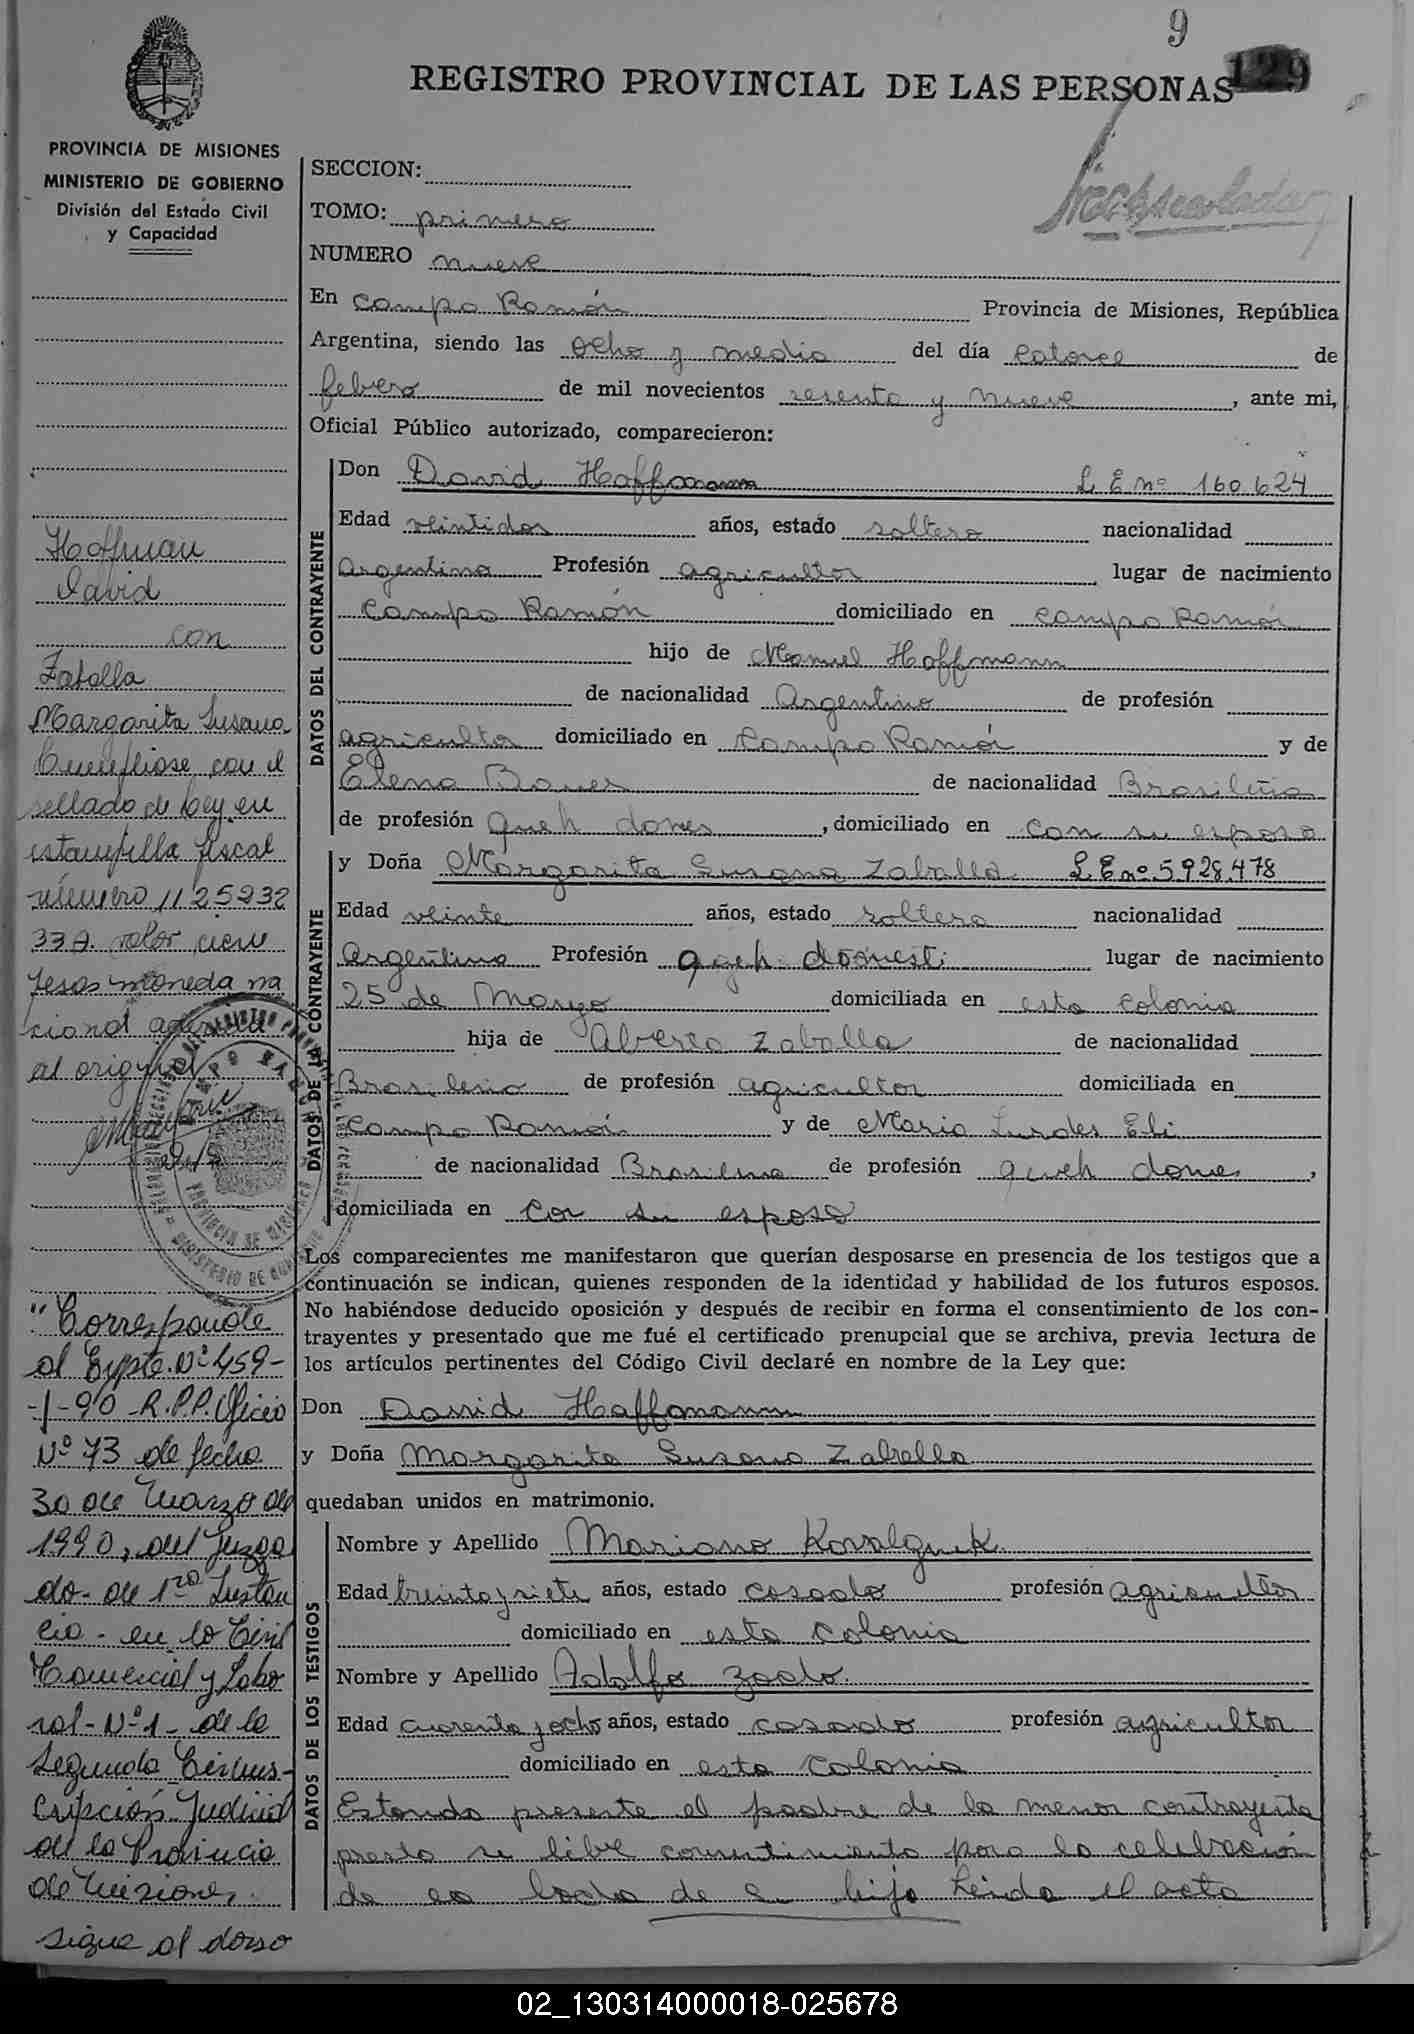 9
129
REGISTRO PROVINCIAL DE LAS PERSONAS
PROVINCIA DE MISIONES
MINISTERIO DE GOBIERNO
División del Estado Civil
y Capacidad
Hoffman
David
con
Zaballa
Margarita Susana
Cumpliose con el
sellado de Ley en
estampilla fiscal
número 1125232
33A. valor cien
pesos moneda na
cional
al original
"Corresponde
al Expte. Nº 459-
-J-90-R.P.P. Oficio
Nº 73 de fecha
30 de Marzo de
1990, del Juzga
do- de 1ra Instan
cia- en lo Civil
Comercial y Labo
ral- Nº 1- de la
Segunda Circuns-
cripción Judicial
de la Provincia
de Misiones.
sigue al dorso
SECCION:
TOMO: primero
NUMERO nueve
En Campo Ramón Provincia de Misiones, República
Argentina, siendo las ocho y media del día catorce de
febrero de mil novecientos sesenta y nueve, ante mi,
Oficial Público autorizado, comparecieron:
DATOS DEL CONTRAYENTE
Don David Hoffmann L E nº 160.624
Edad veintidos años, estado soltero nacionalidad
Argentino Profesión agricultor lugar de nacimiento
Campo Ramón domiciliado en Campo Ramón
hijo de Manuel Hoffmann
de nacionalidad Argentino de profesión
agricultor domiciliado en Campo Ramón y de
Elena Bauer de nacionalidad Brasileña
de profesión queh domes, domiciliado en con su esposo
DATOS DE LA CONTRAYENTE
y Doña Margarita Susana Zaballa L E nº 5.928.478
Edad veinte años, estado soltera nacionalidad
Argentina Profesión queh domesti lugar de nacimiento
25 de Mayo domiciliada en esta colonia
hija de Alberto Zaballa de nacionalidad
Brasileño de profesión agricultor domiciliada en
Campo Ramón y de Maria Lurdes Eli
de nacionalidad Brasileña de profesión queh domes,
domiciliada en con su esposo
Los comparecientes me manifestaron que querían desposarse en presencia de los testigos que a
continuación se indican, quienes responden de la identidad y habilidad de los futuros esposos.
No habiéndose deducido oposición y después de recibir en forma el consentimiento de los con-
trayentes y presentado que me fué el certificado prenupcial que se archiva, previa lectura de
los artículos pertinentes del Código Civil declaré en nombre de la Ley que:
Don David Hoffmann
y Doña Margarita Susana Zaballa
quedaban unidos en matrimonio.
DATOS DE LOS TESTIGOS
Nombre y Apellido Mariano Kovalguk
Edad treinta y siete años, estado casado profesión agricultor
domiciliado en esta colonia
Nombre y Apellido Adolfo Zado
Edad cuarenta y ocho años, estado casado profesión agricultor
domiciliado en esta colonia
Estando presente el padre de la menor contrayente
presta su libre consentimiento para la celebración
de la boda de su hija Leida el acta
02_130314000018-025678